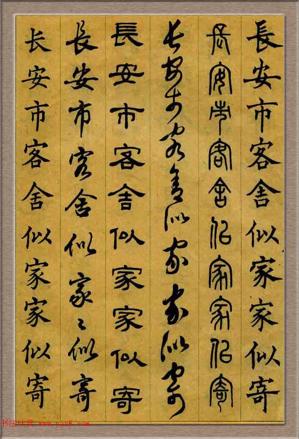 長安市客舍似家家似寄
長安市客舍佀家家佀寄
長安市客舍似家家似寄
長安市客舍似家家似寄
長安市客舍似家々似寄
长安市客舍似家家似寄